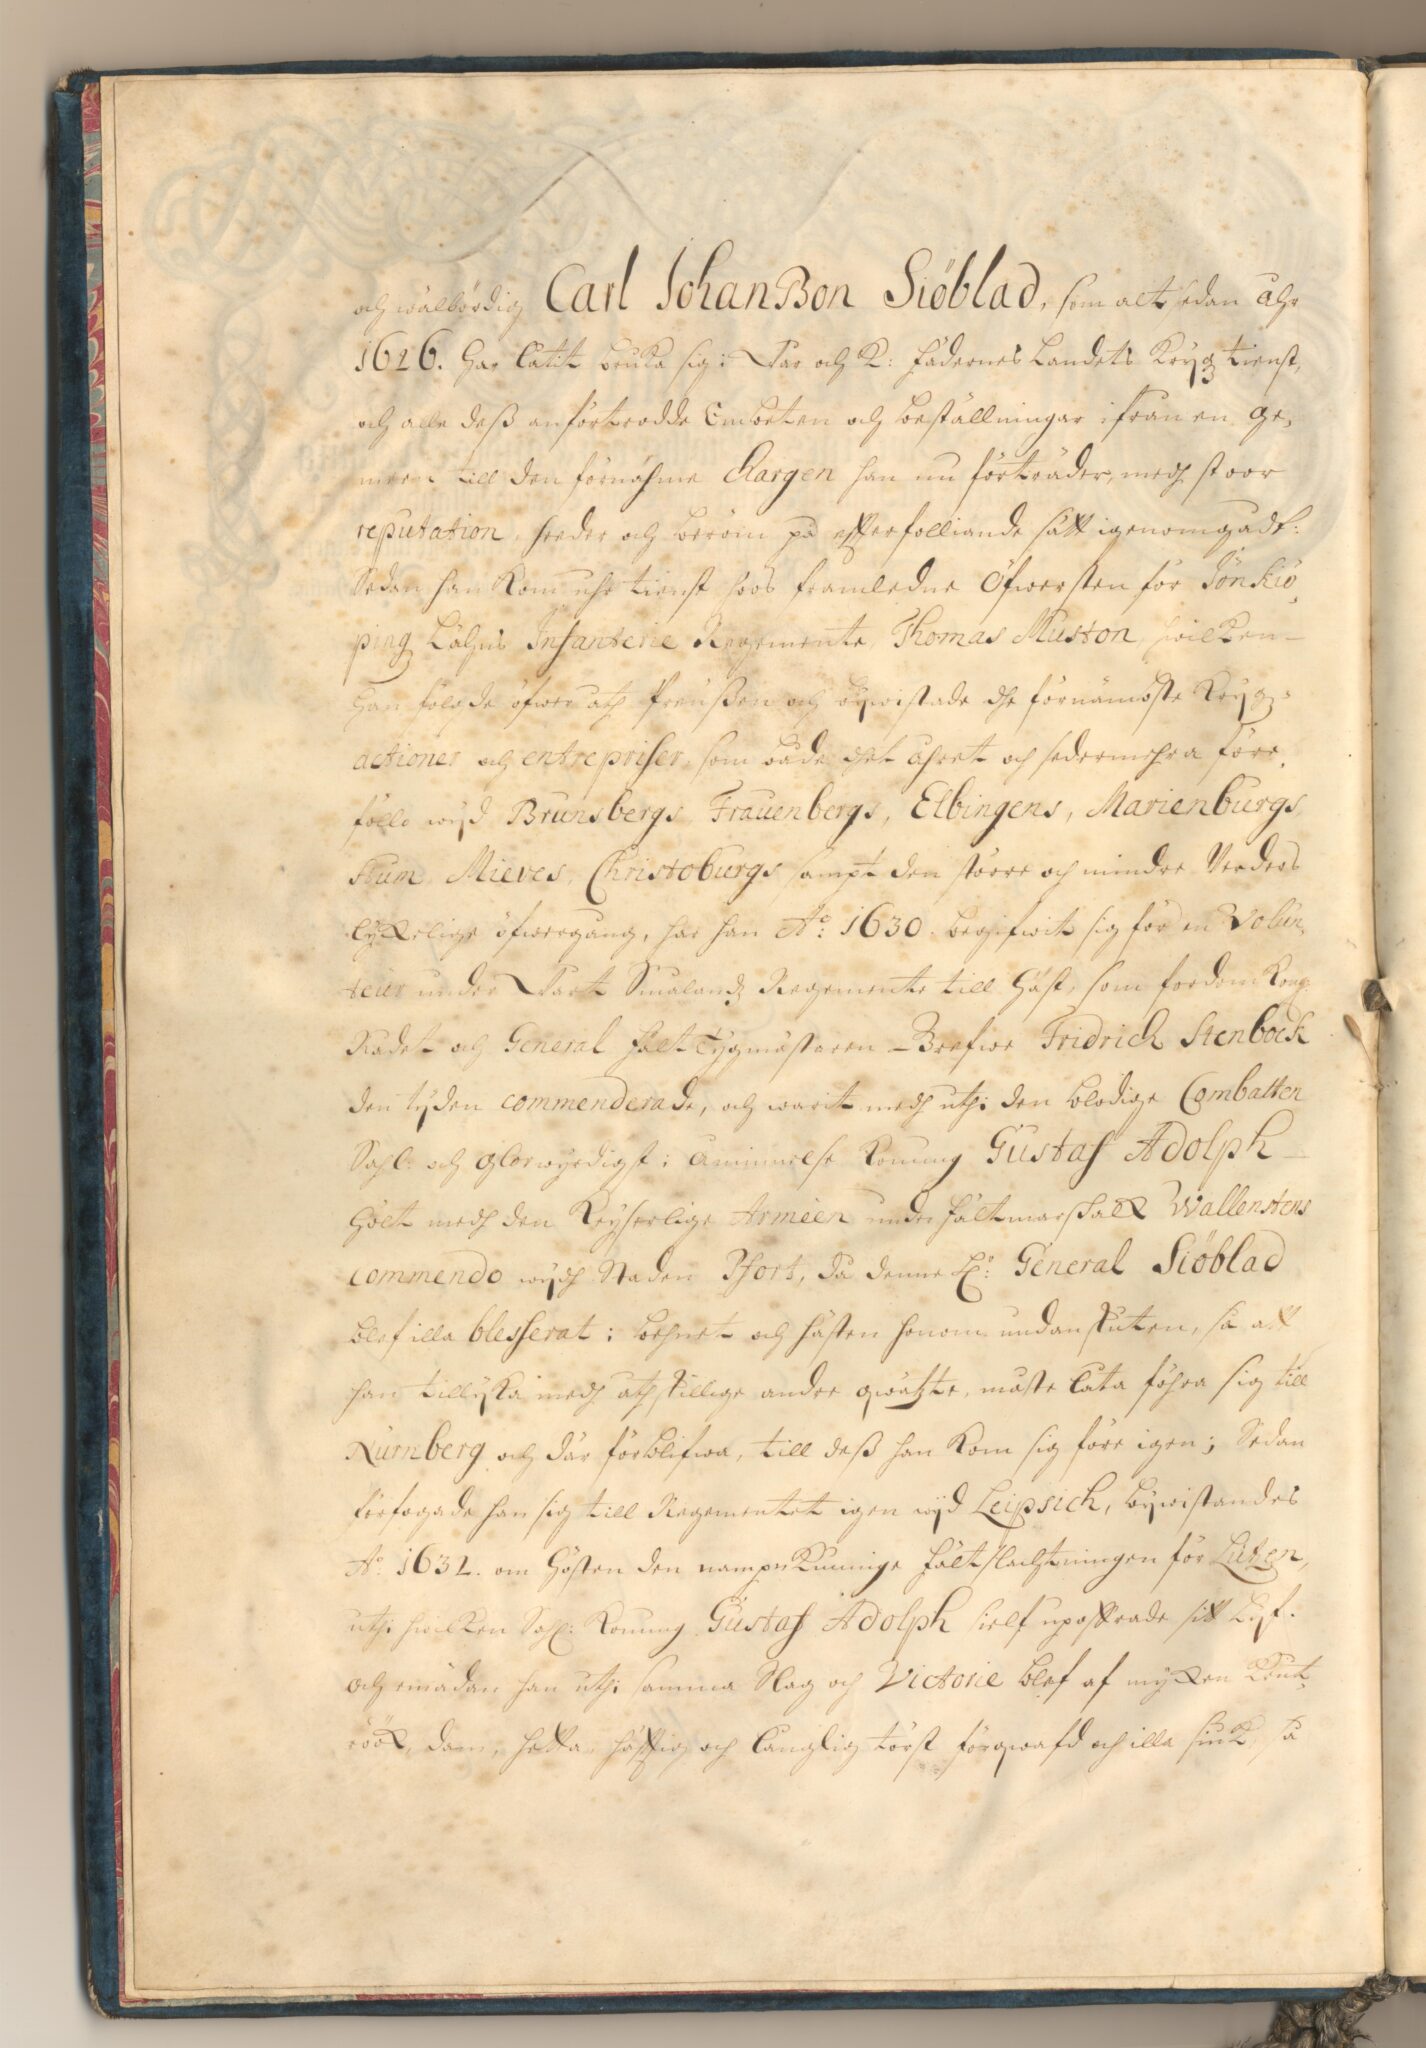 och wälbördig Carl JohanBon Siöblad, som alt sedan Ahr
1626. har låtit bruka sig i Wår och K: Fädernes Landets Krygztienst,
och alle deß anförtrodde Embeten och beställningar ifrån en ge,
meen till den förnähme Chargen han nu förträder, medh stoor
reputation, heder och beröm på effterfölliande sätt igenomgådt:
Sedan han kom uthi tienst hoos framledne Öfwersten för Jönkiö,
ping Lähns Infanterie Regemente, Thomas Muston, hwilken
han fölgde öfwer åth Preußen och bywistade the förnämbste Krygz-
actioner och entrepriser, som både thet åhret och sedermehra före,
föllo wijd Brunsbergs Frauenbergs, Elbingens, Marienburgs,
Stum, Mieves, Christoburgs, sampt den större och mindre Verders
lyckelige öfwergång, har han A:o 1630. begifwit sig för en Volun,
teur under Wårt Smålandz Regemente till häst, som fordom Kongl.
Rådet och General Fält Tygmästaren Grefwe Fridrich Stenbock
den tijden commenderade, och warit medh uthi den blodige Combatten
Sahl: och glorwyrdigst i åminnelse Konung Gustaf Adolph
hölt medh den Keyserlige Arméen under Fältmarskalk Wallenstens
commendo wijdh Staden Pfort, då denne General Siöblad
blef illa blesserat i behnet och hästen honom undanskuten, så att
han tillijka medh åthskillige andre qwätzte, måste låta föhra sig till
Nürnberg och där förblifwa, till deß han kom sig före igen; Sedan
förfogade han sig till Regementet igen wijd Leipsich, bywistandes
A:o 1632. om hösten den nampnkunnige fältslachtningen för Lützen,
uthi hwilken Sahl: Konung Gustaf Adolph sielf upoffrade sitt Lijf.
och emädan han uthi samma Slag och Victorie blef af mycken krut,
röök, dam, hetta, häfftig och långlig törst förqwafd och illa siuk, så